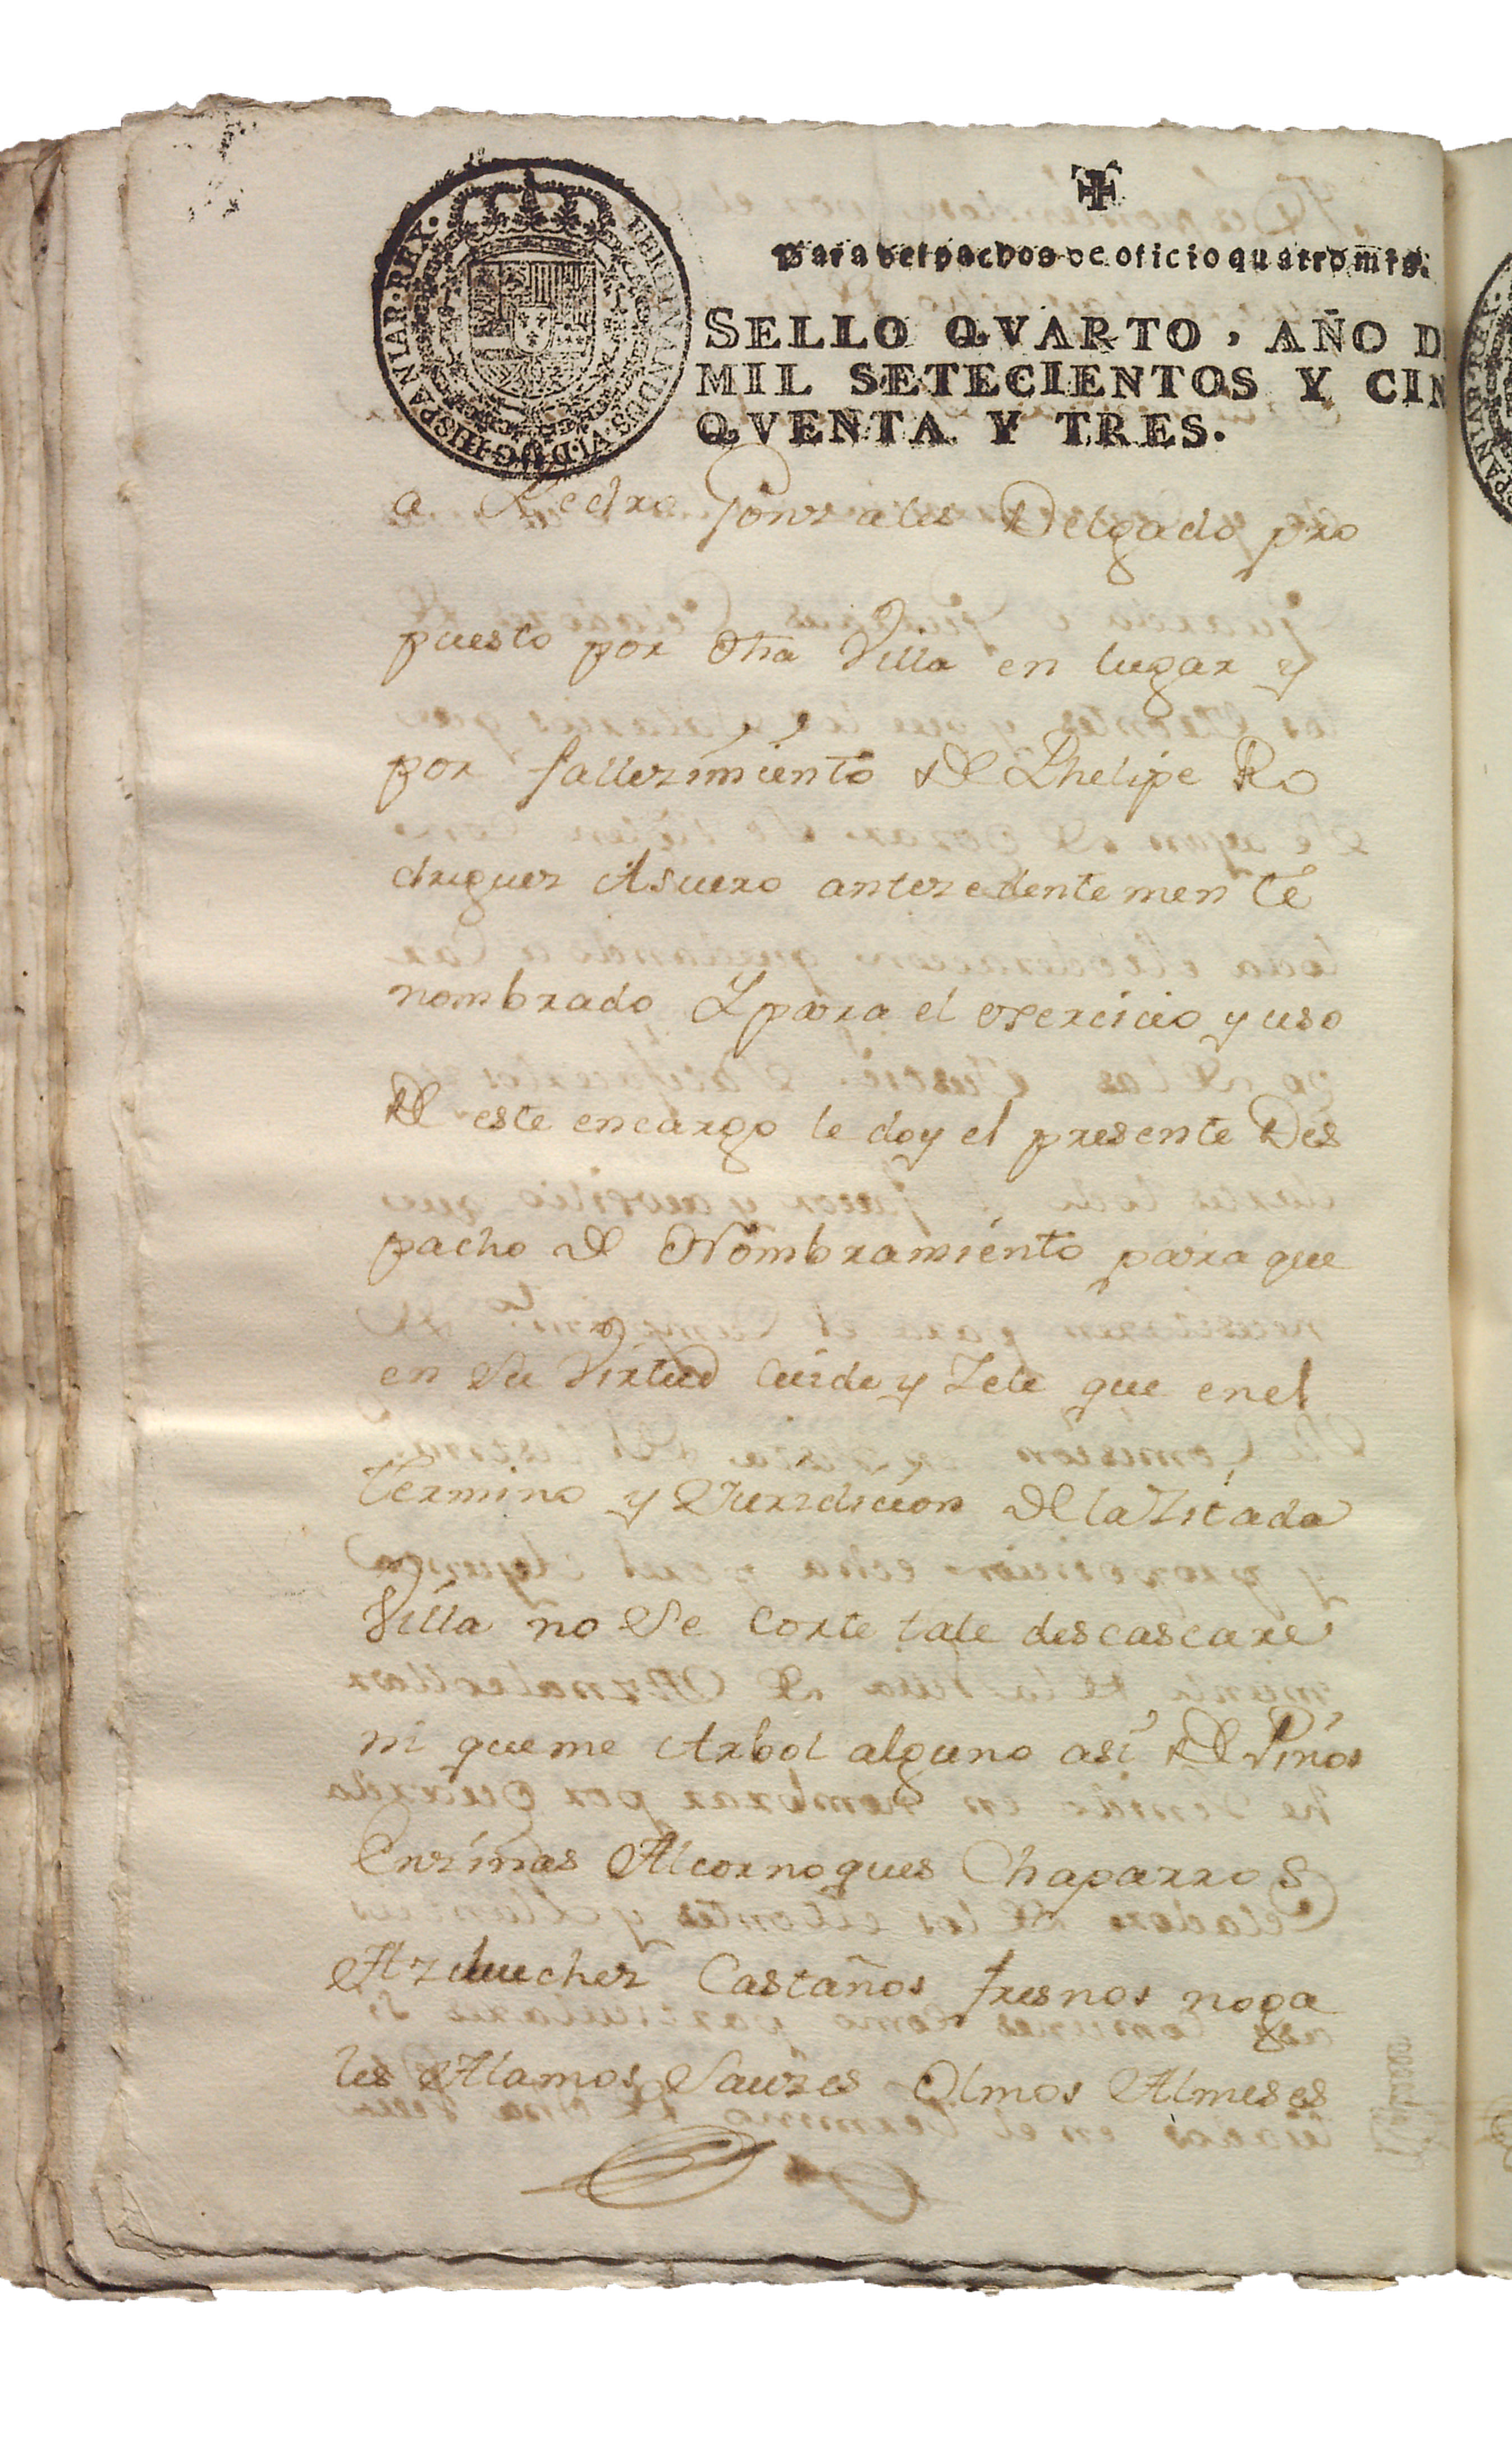 FERDINANDUS·VI·D·G·HISPANIAR·REX·
para despachos de oficio quatro mrs.
SELLO QVARTO, AÑO D
MIL SETECIENTOS Y CIN
QVENTA Y TRES.
a Pedro Gonzales Delgado pro
puesto por dha Villa en lugar y
por fallezimiento de Phelipe Ro
driguez Asuero antezedentemente
nombrado Y para el exercicio y uso
de este encargo le doy el presente Des
pacho de Nombramiento para que
en su Virtud Cuide y Zele que en el
termino y Jurizdicion de la Zitada
Villa no se Corte tale descascare
ni queme Arbol alguno asi de Pinos
Enzinas Alcornoques Chaparros
Azebuchez Castaños fresnos noga
les Alamos Sauzes Olmos Almeses